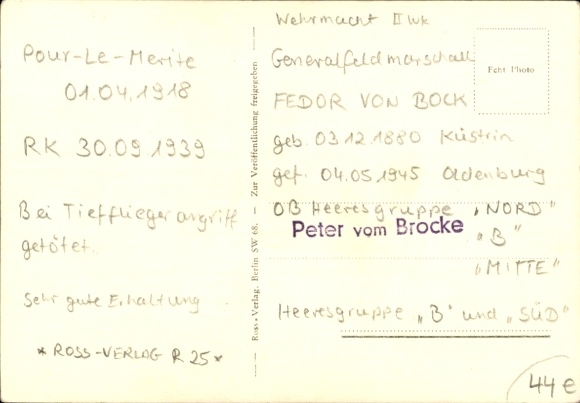 Pour-Le-Merite
01.04.1918
RK 30.09.1939
Bei Tieffliegerangriff
getötet.
Sehr gute Erhaltung
* ROSS-VERLAG R 25 *
Ross-Verlag, Berlin SW 68. — Zur Veröffentlichung freigegeben —
Wehrmacht II Wk
Generalfeldmarschall
Echt Photo
FEDOR VON BOCK
geb. 03.12.1880 Küstrin
gef. 04.05.1945 Oldenburg
OB Heeresgruppe „NORD"
Peter vom Brocke
„B"
„MITTE"
Heeresgruppe „B" und „SÜD"
44 €